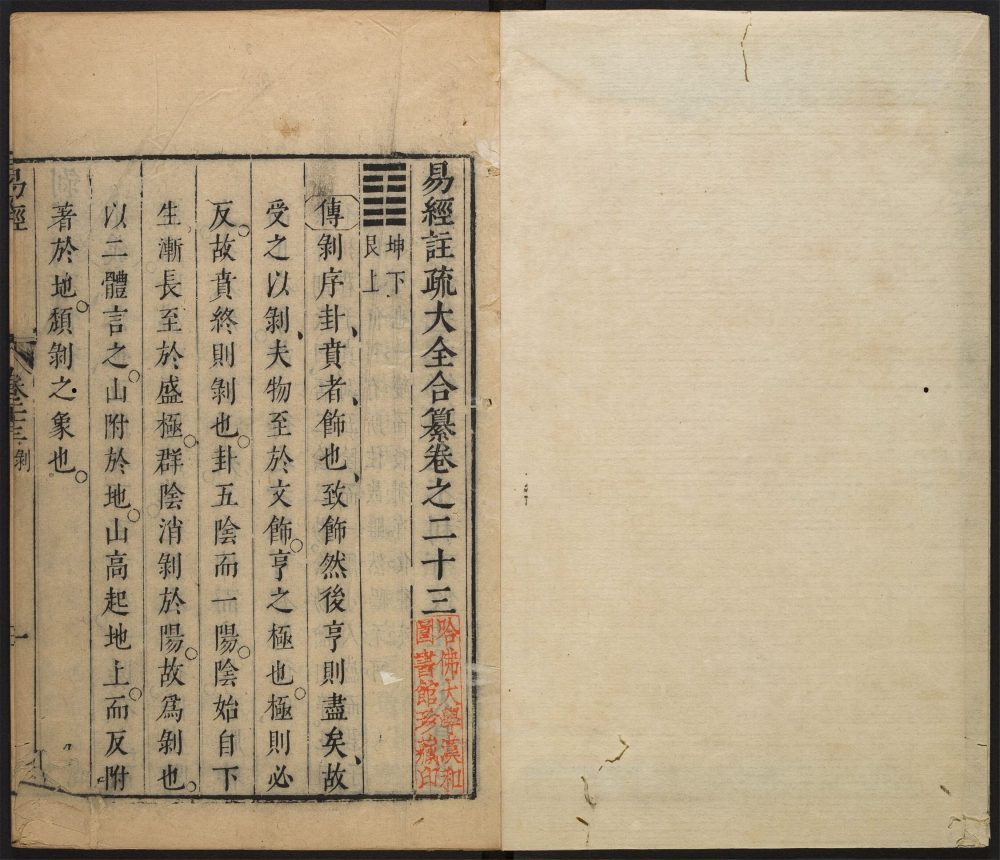 易經註疏大全合纂卷之二十三
哈佛大學漢和
圖書館珍藏印
坤下
艮上
傳剝序卦、賁者、飾也、致飾然後亨則盡矣、故
受之以剝、夫物至於文飾。亨之極也。極則必
反。故賁終則剝也。卦五陰而一陽。陰始自下
生漸長至於盛極。群陰消剝於陽。故爲剝也。
以二體言之。山附於地。山高起地上。而反附
著於地。頹剝之象也。
易經
卷二十三 剝
一